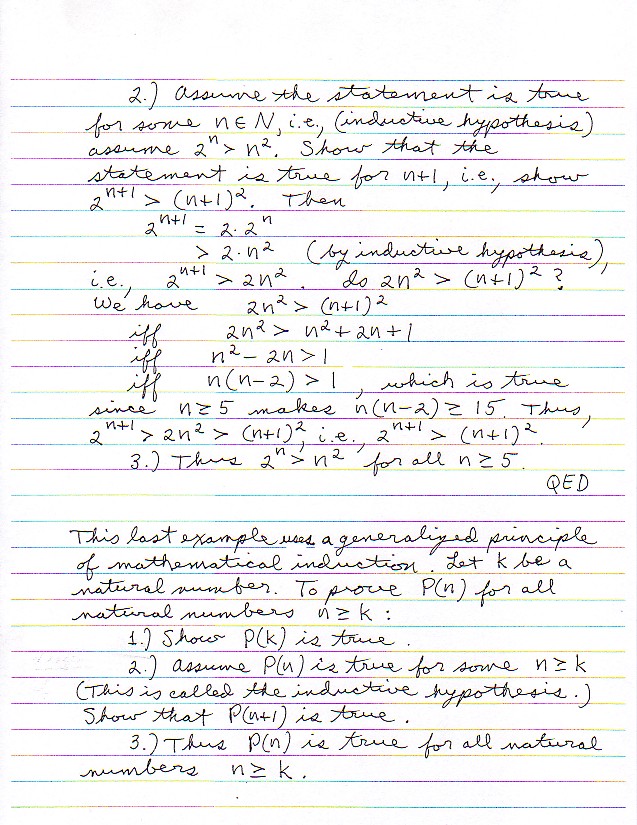 2.) Assume the statement is true
for some n ∈ N, i.e., (inductive hypothesis)
assume 2ⁿ > n². Show that the
statement is true for n+1, i.e., show
2ⁿ⁺¹ > (n+1)². Then
2ⁿ⁺¹ = 2·2ⁿ
> 2·n² (by inductive hypothesis),
i.e., 2ⁿ⁺¹ > 2n². Is 2n² > (n+1)² ?
We have 2n² > (n+1)²
iff 2n² > n² + 2n + 1
iff n² - 2n > 1
iff n(n-2) > 1, which is true
since n ≥ 5 makes n(n-2) ≥ 15. Thus,
2ⁿ⁺¹ > 2n² > (n+1)², i.e., 2ⁿ⁺¹ > (n+1)².
3.) Thus 2ⁿ > n² for all n ≥ 5.
QED
This last example uses a generalized principle
of mathematical induction. Let k be a
natural number. To prove P(n) for all
natural numbers n ≥ k :
1.) Show P(k) is true.
2.) Assume P(n) is true for some n ≥ k
(This is called the inductive hypothesis.)
Show that P(n+1) is true.
3.) Thus P(n) is true for all natural
numbers n ≥ k.